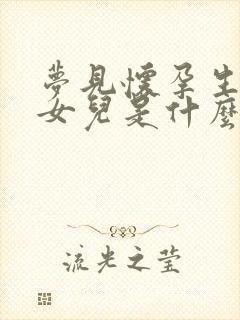 夢見懷孕生
女兒是什麼
流光之莹